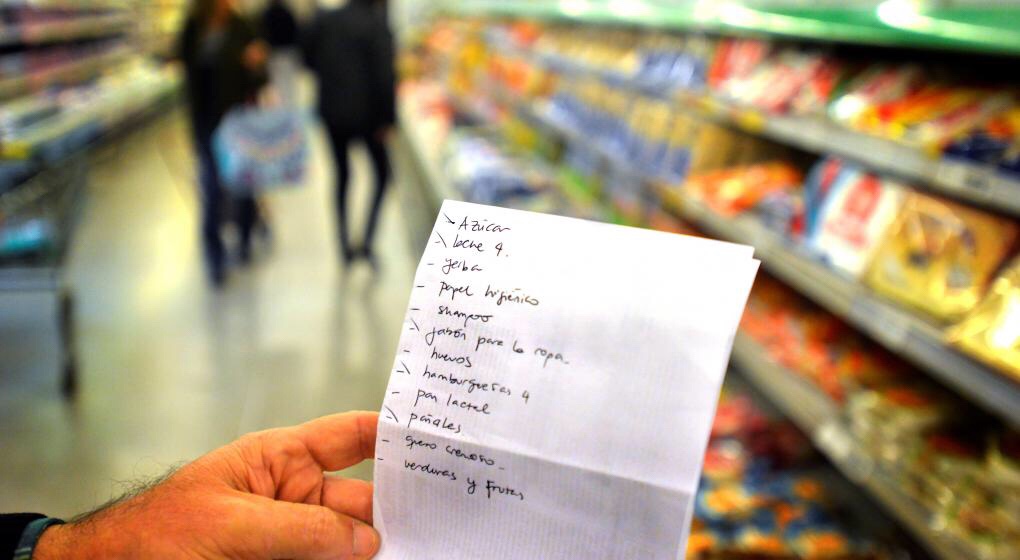 \ Azúcar
\ leche 4.
- yerba
- papel higiénico
- shampoo
\ jabón para la ropa.
- huevos
\ hamburguesas 4
- pan lactal
\ pañales
- queso cremoso -
- verduras y frutas